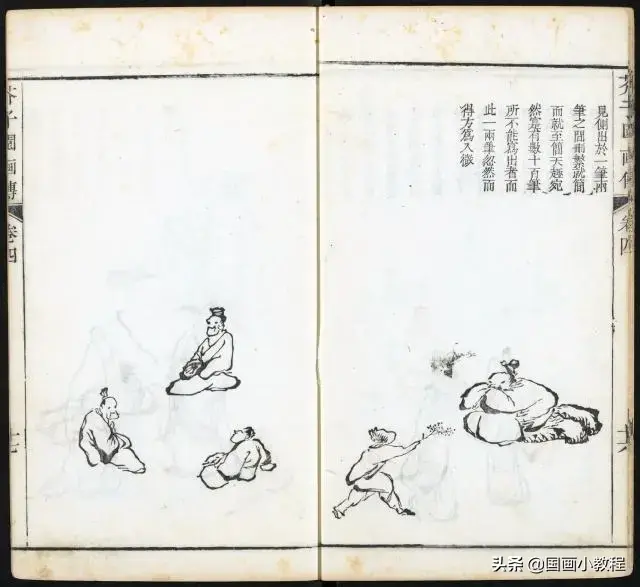 芥子園画傳
卷四
見側出於一筆兩
筆之間刪繁就簡
而就至簡天趣宛
然寔有數十百筆
所不能寫出者而
此一兩筆忽然而
得方爲入微
芥子園画傳
卷四
头条 @国画小教程